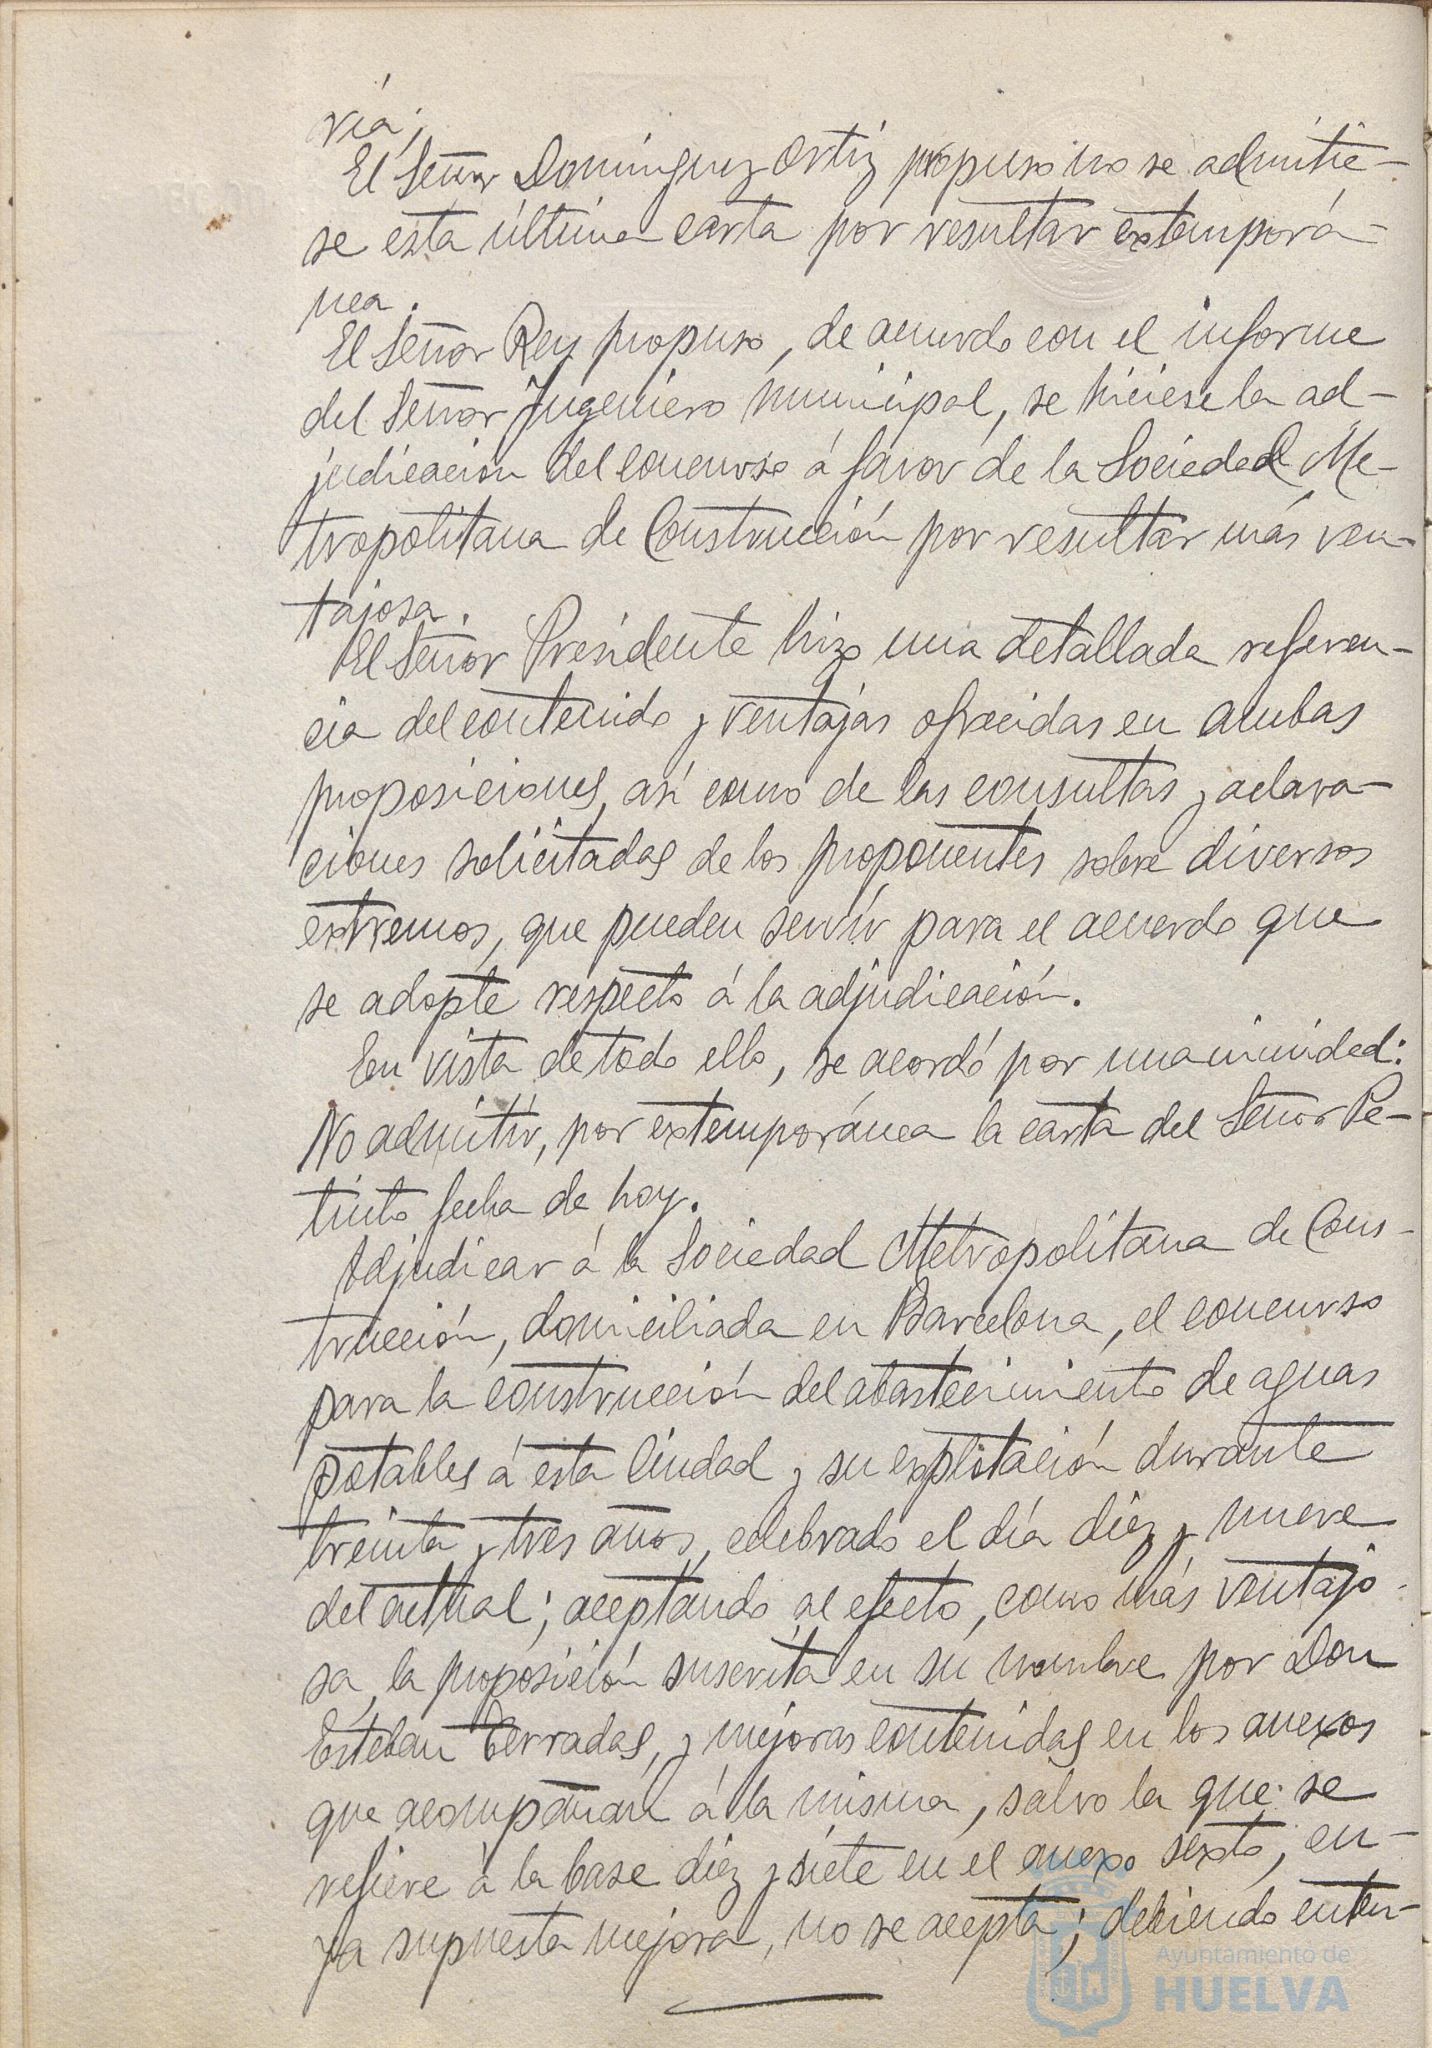 vía;
El Señor Domínguez Ortiz propuso no se admitie-
se esta última carta por resultar extemporá-
nea.
El Señor Rey propuso, de acuerdo con el informe
del Señor Ingeniero municipal, se hiciese la ad-
judicación del concurso á favor de la Sociedad Me-
tropolitana de Construcción por resultar más ven-
tajosa.
El Señor Presidente hizo una detallada referen-
cia del contenido y ventajas ofrecidas en ambas
proposiciones, así como de las consultas y aclara-
ciones solicitadas de los proponentes sobre diversos
extremos, que pueden servir para el acuerdo que
se adopte respecto á la adjudicación.
En vista de todo ello, se acordó por unanimidad:
No admitir, por extemporánea la carta del Señor Pe-
tinto fecha de hoy.
Adjudicar á la Sociedad Metropolitana de Cons-
trucción, domiciliada en Barcelona, el concurso
para la construcción del abastecimiento de aguas
potables á esta Ciudad y su explotación durante
treinta y tres años, celebrado el día diez y nueve
del actual; aceptando al efecto, como más ventajo-
sa, la proposición suscrita en su nombre por Don
Esteban Terradas, y mejoras contenidas en los anexos
que acompañan á la misma, salvo la que se
refiere á la base diez y siete en el anexo sexto, cu-
ya supuesta mejora, no se acepta; debiendo enten-
Ayuntamiento de
HUELVA